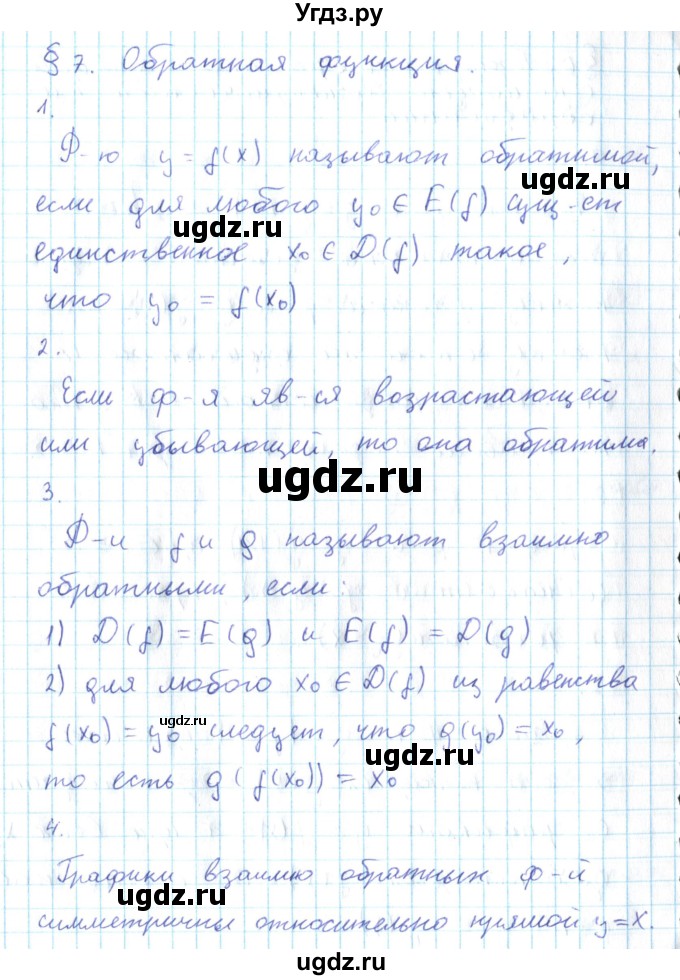 Угдз.ру
§ 7. Обратная функция.
1.
Ф-ю y = f(x) называют обратимой,
ugdz.ru
если для любого y₀ ∈ E(f) сущ-ет
ugdz.ru
единственное x₀ ∈ D(f) такое,
что y₀ = f(x₀)
2.
Если ф-я яв-ся возрастающей
или убывающей, то она обратима.
ugdz.ru
3.
Ф-и f и g называют взаимно
обратными, если:
1) D(f) = E(g) и E(f) = D(g)
2) для любого x₀ ∈ D(f) из равенства
ugdz.ru
f(x₀) = y₀ следует, что g(y₀) = x₀,
ugdz.ru
то есть g(f(x₀)) = x₀
4.
Графики взаимно обратных ф-й
симметричны относительно прямой y=x.
ugdz.ru
ugdz.ru